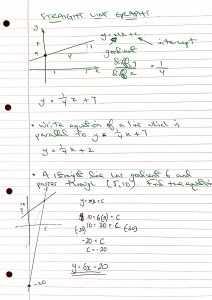 STRAIGHT LINE GRAPHS
y = mx + c
intercept
gradient
diff y
diff x
= 1/4
y = 1/4 x + 7.
• Write equation of a line which is
parallel to y = 1/4 x + 7
y = 1/4 x + 2
• A straight line has gradient 6 and
passes through (5,10). Find the equation
y = mx + c
10 = 6(5) + c
10 = 30 + c
(-30) (-30)
-20 = c
c = -20
y = 6x - 20
-20